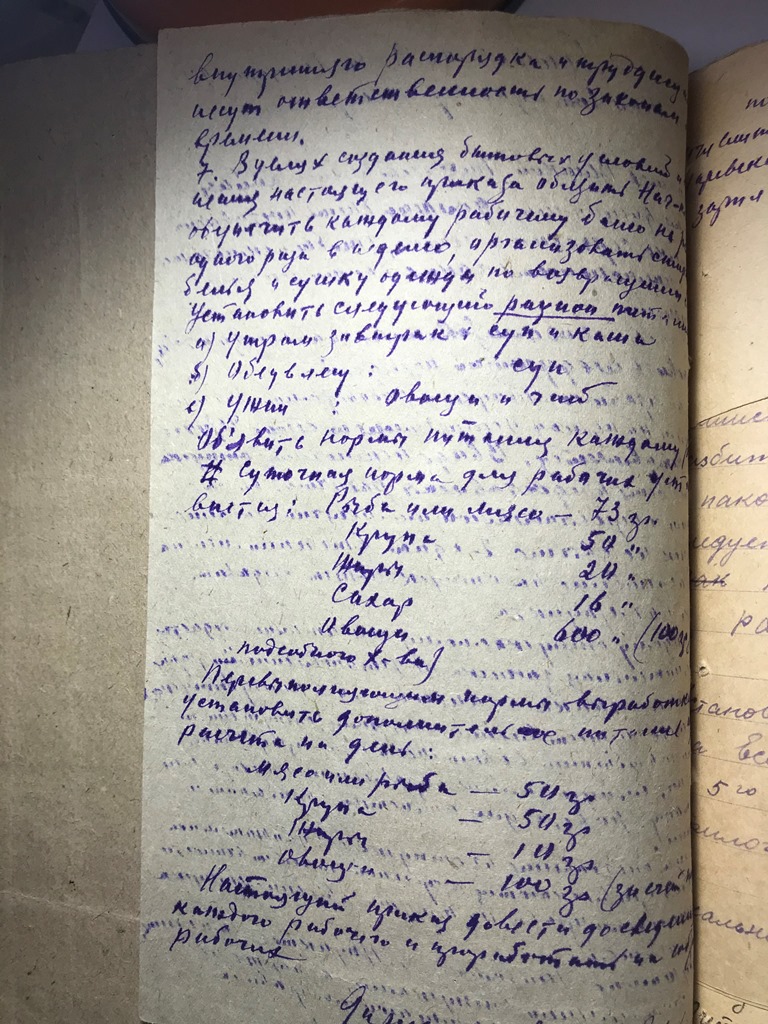 внутреннего распорядка и труддисц
несут ответственность по законам
времени.
7. В целях создания бытовых условий и
нения настоящего приказа обязать Нач-
обеспечить каждому рабочему баню не р
одного раза в неделю, организовать стир
белья и сушку одежды по возвращении
Установить следующий рацион питани
а) Утром завтрак: суп и каша
б) Обед в лесу: суп
с) Ужин : овощи и чай
Объявить нормы питания каждому
Суточная норма для рабочих уст
вается: Рыба или мясо — 73 гр
Крупа 50 "
Жиры 20 "
Сахар 16 "
Овощи 600 " (100 гр
подсобного х-ва)
Перевыполняющим нормы выработки
установить дополнительное питание
расчета на день:
мясо или рыба — 50 гр
Крупа — 50 гр
Жиры — 10 гр
Овощи — 100 гр (за счет
Настоящий приказ довести до сведения
каждого рабочего и проработать на
рабочих